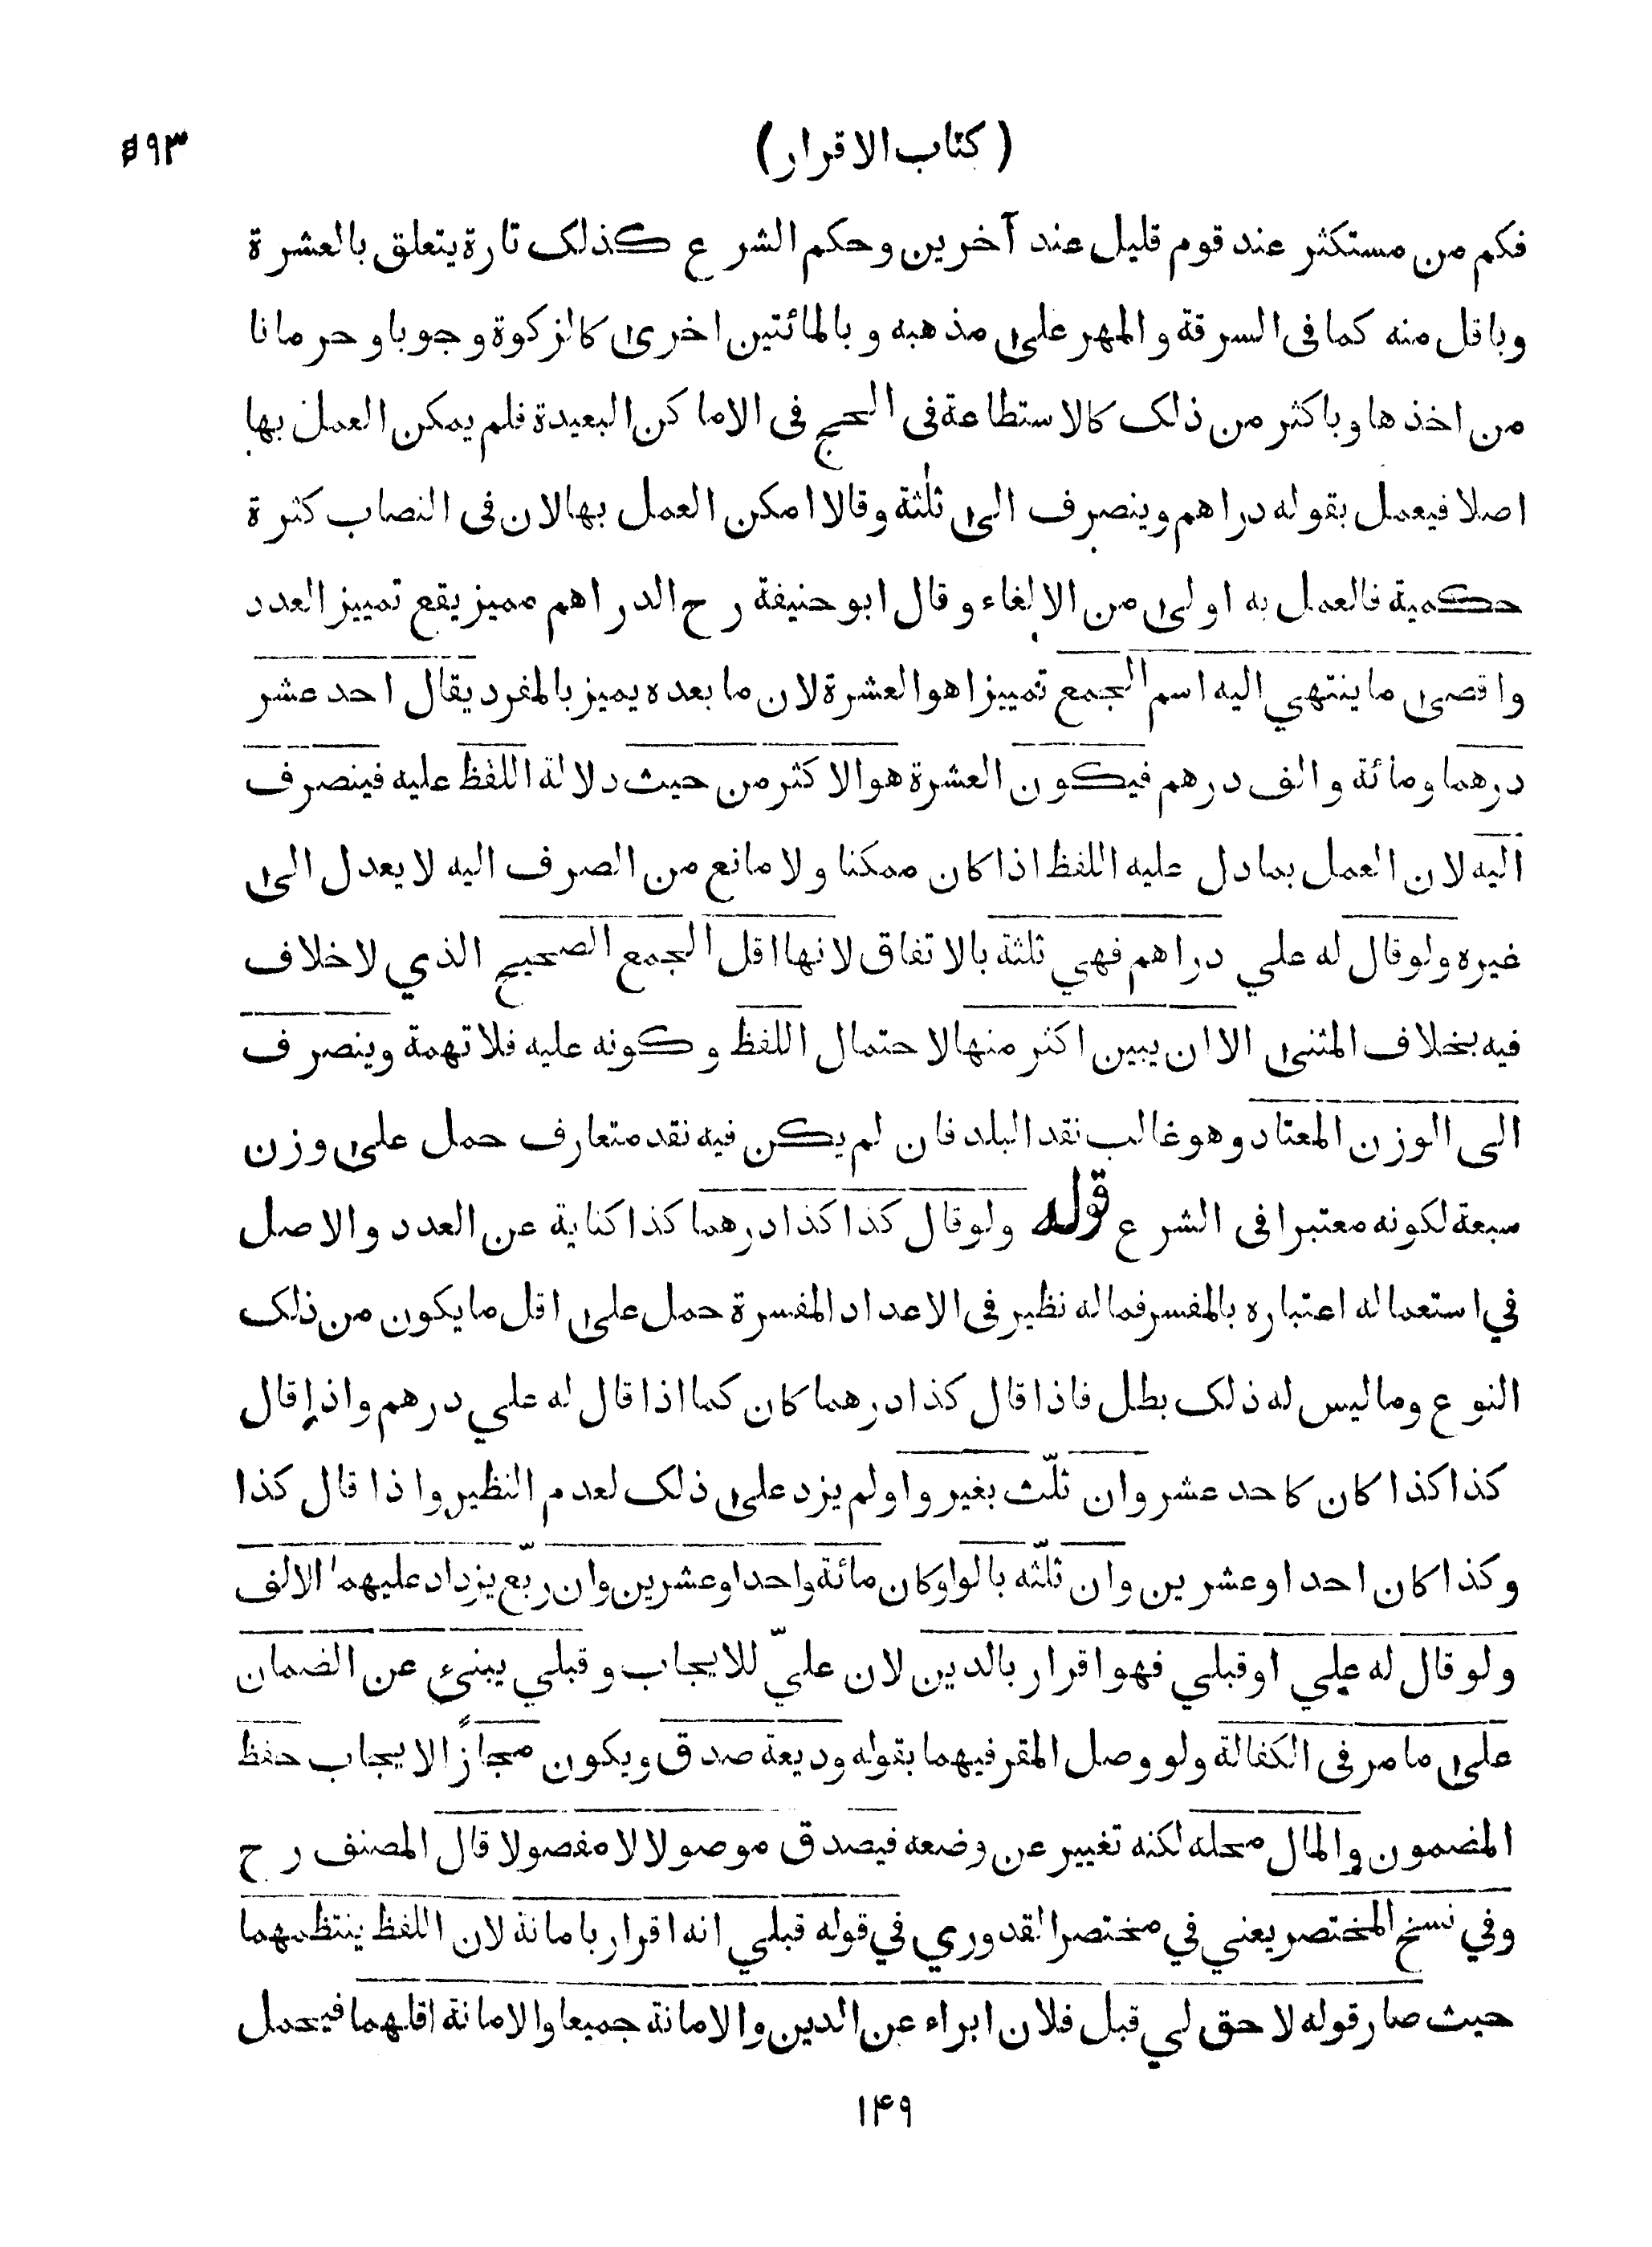 ( كتاب الاقرار )
فكم من مستكثر عند قوم قليل عند آخرين وحكم الشرع كذلك تارة يتعلق بالعشرة
وباقل منه كما فى السرقة والمهر علىٰ مذهبه وبالمائتين اخرىٰ كالزكوة وجوبا وحرمانا
من اخذها وباكثر من ذلك كالاستطاعة فى الحج فى الاماكن البعيدة فلم يمكن العمل بها
اصلا فيعمل بقوله دراهم وينصرف الىٰ ثلٰثة وقالا امكن العمل بها لان فى النصاب كثرة
حكمية فالعمل به اولىٰ من الالغاء وقال ابو حنيفة رح الدراهم مميز يقع تمييز العدد
واقصىٰ ما ينتهي اليه اسم الجمع تمييزا هو العشرة لان ما بعده يميز بالمفرد يقال احد عشر
درهما ومائة والف درهم فيكون العشرة هو الاكثر من حيث دلالة اللفظ عليه فينصرف
اليه لان العمل بما دل عليه اللفظ اذا كان ممكنا ولا مانع من الصرف اليه لا يعدل الىٰ
غيره ولو قال له علي دراهم فهي ثلثة بالاتفاق لانها اقل الجمع الصحيح الذي لا خلاف
فيه بخلاف المثنىٰ الا ان يبين اكثر منها لاحتمال اللفظ وكونه عليه فلا تهمة وينصرف
الى الوزن المعتاد وهو غالب نقد البلد فان لم يكن فيه نقد متعارف حمل علىٰ وزن
سبعة لكونه معتبرا فى الشرع قوله ولو قال كذا كذا درهما كذا كناية عن العدد والاصل
في استعماله اعتباره بالمفسر فما له نظير فى الاعداد المفسرة حمل علىٰ اقل ما يكون من ذلك
النوع وما ليس له ذلك بطل فاذا قال كذا درهما كان كما اذا قال له علي درهم واذا قال
كذا كذا كان كاحد عشر وان ثلّث بغير واو لم يزد علىٰ ذلك لعدم النظير واذا قال كذا
وكذا كان احدا وعشرين وان ثلّثه بالواو كان مائة واحدا وعشرين وان ربّع يزداد عليهما الالف
ولو قال له علي او قبلي فهو اقرار بالدين لان عليّ للايجاب وقبلي يبنىء عن الضمان
علىٰ ما مر فى الكفالة ولو وصل المقر فيهما بقوله وديعة صدق ويكون مجازًا لايجاب حفظ
المضمون والمال محله لكنه تغيير عن وضعه فيصدق موصولا لا مفصولا قال المصنف رح
وفي نسخ المختصر يعني في مختصر القدوري في قوله قبلي انه اقرار بامانة لان اللفظ ينتظمهما
حيث صار قوله لا حق لي قبل فلان ابراء عن الدين والامانة جميعا والامانة اقلهما فيحمل
۱۴۹